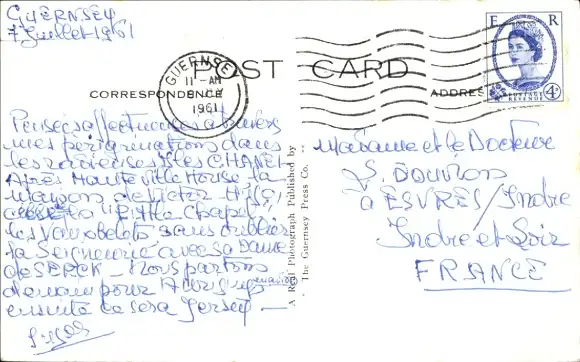 GUERNSEY
7 Juillet 1961
POST CARD
CORRESPONDENCE
ADDRESS
GUERNSEY
11 - AM
1961
E R
POSTAGE
REVENUE
4d
Pensées affectueuses à travers
mes pérégrinations dans
les radieuses Isles CHANEL
Après Hauteville House, la
maison de Victor HUGO,
la "Little Chapel"
les sans oublier
la Seigneurie avec sa Dame
de SERCK - Nous partons
demain pour
ensuite ce sera Jersey -
A Real Photograph Published by
The Guernsey Press Co.
Madame et le Docteur
J. BOUVRON
à ESVRES/Indre
Indre et Loir
FRANCE